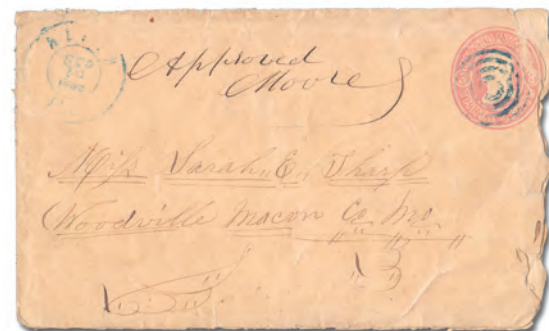 Approved
Moore
Miss Sarah E. Sharp
Woodville Macon Co Mo